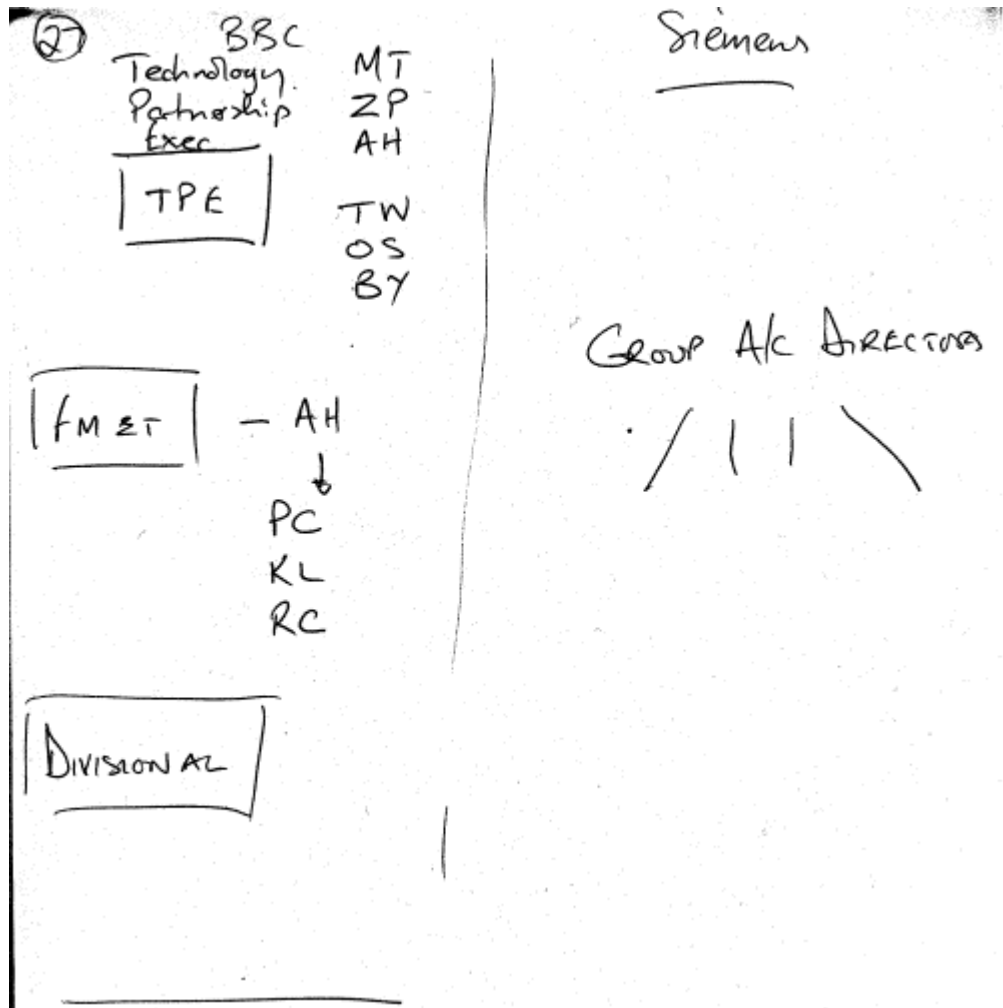 27
BBC
Technology
Partnership
Exec
TPE
MT
ZP
AH
TW
OS
BY
FM&T
- AH
PC
KL
RC
DIVISIONAL
Siemens
GROUP A/C DIRECTORS